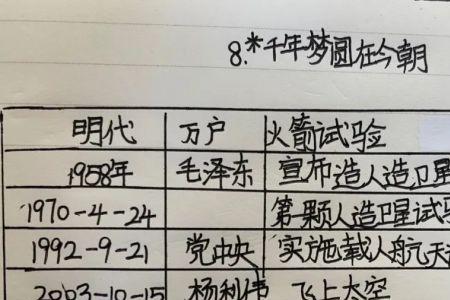 8.*千年梦圆在今朝
明代 万户 火箭试验
1958年 毛泽东 宣布造人造卫星
1970-4-24 第一颗人造卫星试
1992-9-21 党中央 实施载人航天
2003-10-15 杨利伟 飞上太空